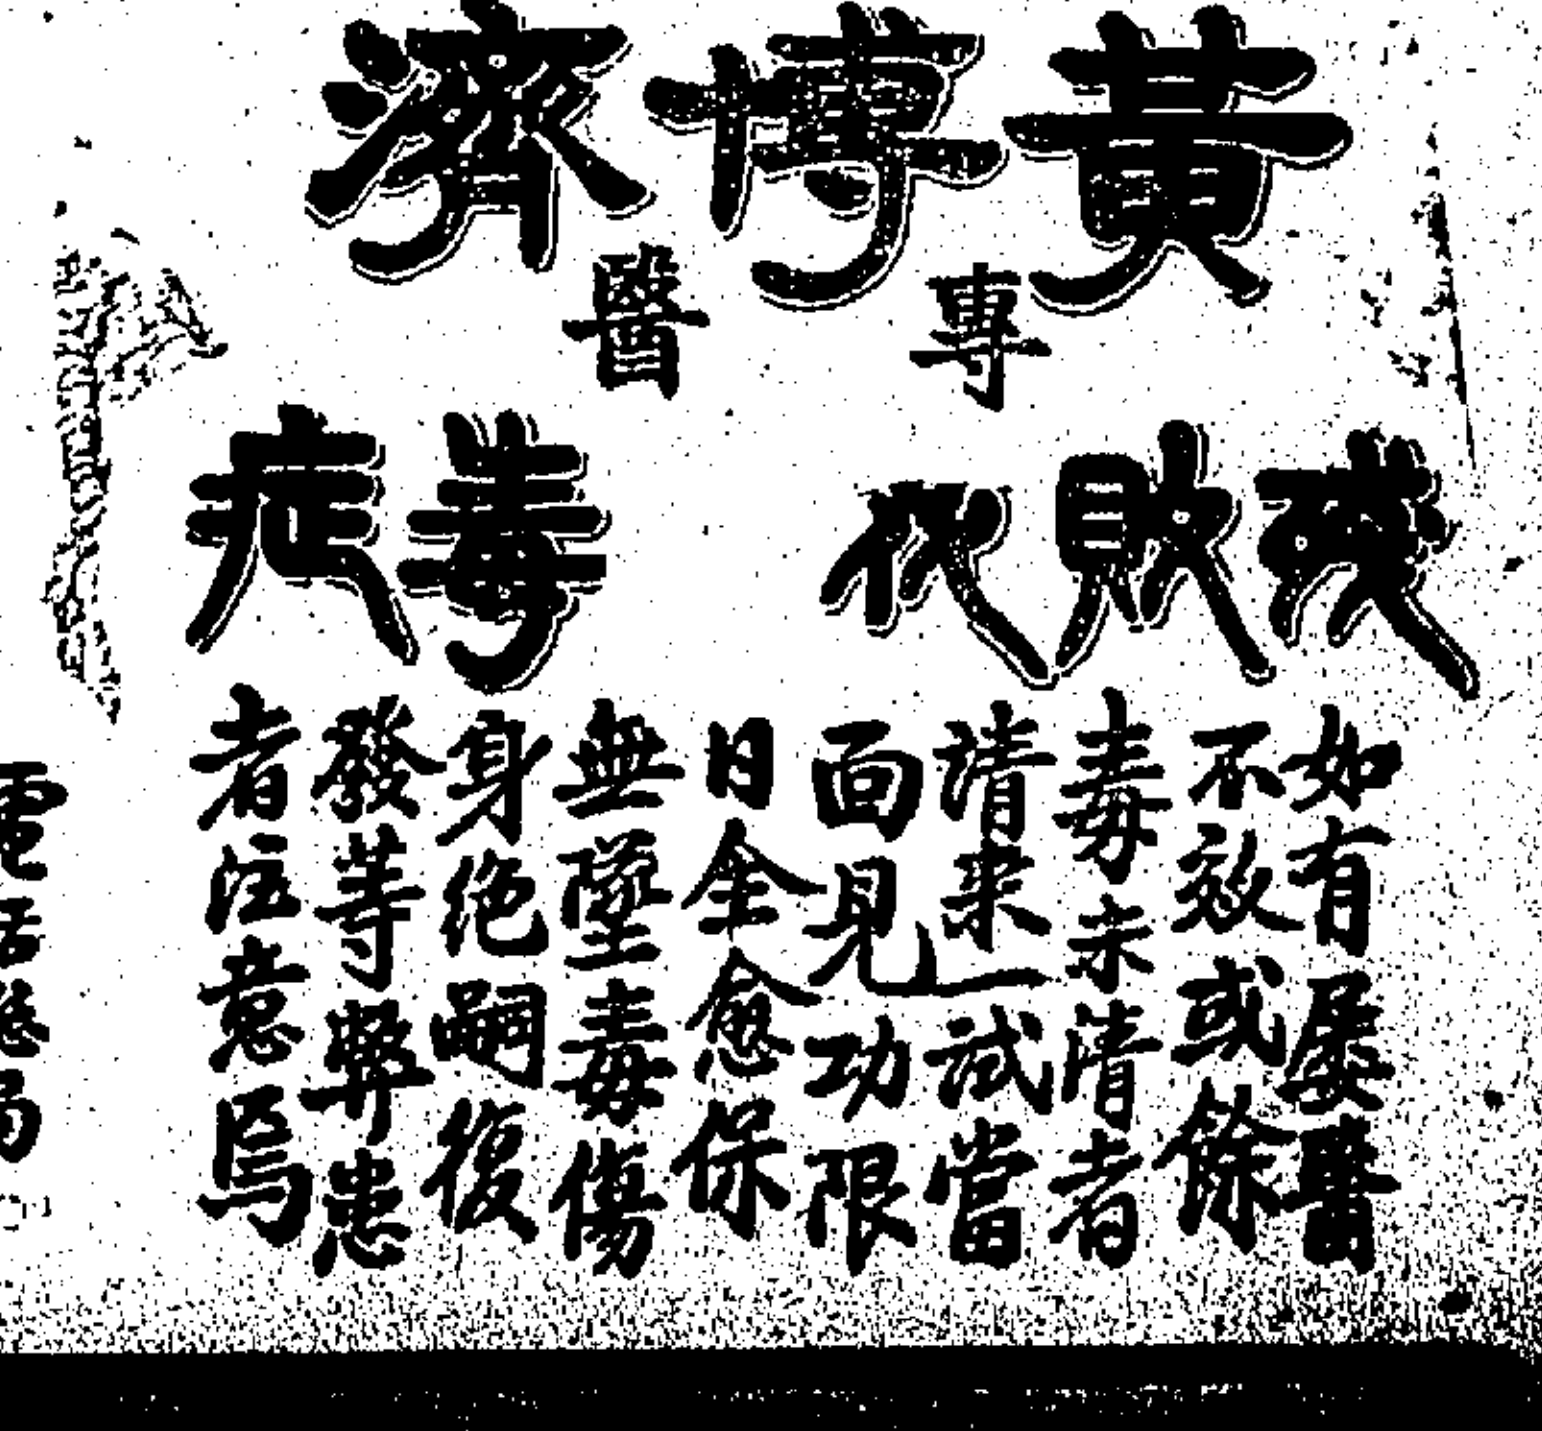 黃博濟
專醫
殘敗代
毒症
如有屡醫
不效或餘
毒未清者
請来一試當
面見功限
日全愈保
無墜毒傷
身绝嗣復
發等弊患
者注意焉
電話總局